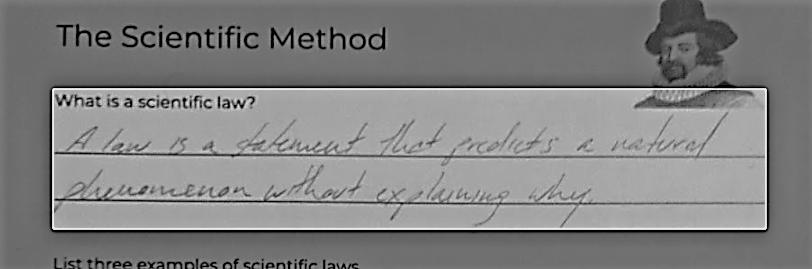 The Scientific Method
What is a scientific law?
A law is a statement that predicts a natural
phenomenon without explaining why.
List three examples of scientific laws